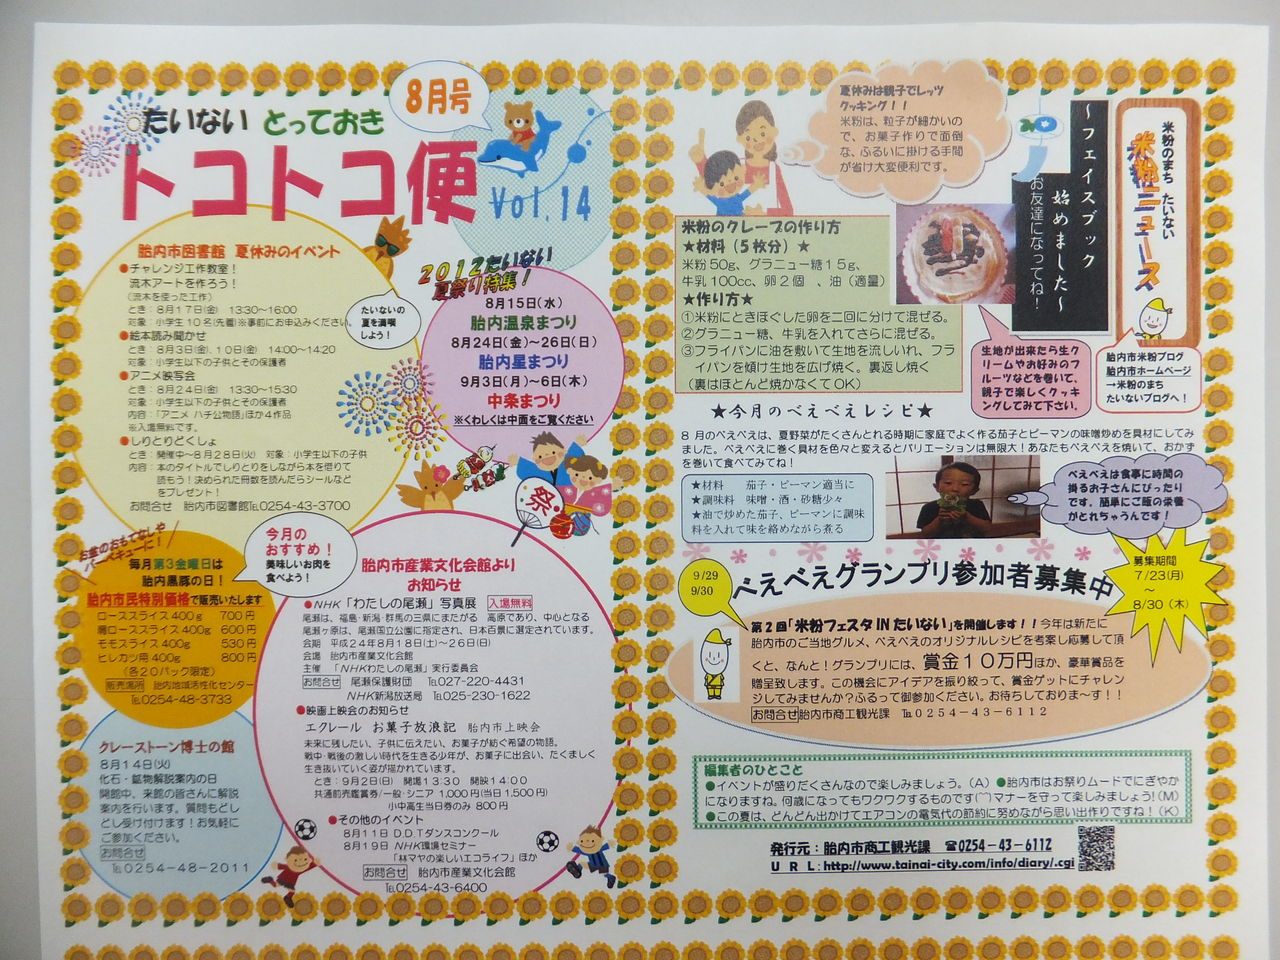 8月号
たいない とっておき
トコトコ便
Vol.14
胎内市図書館 夏休みのイベント
●チャレンジ工作教室！
流木アートを作ろう！
（流木を使った工作）
とき：8月17日(金) 13:30～16:00
対象：小学生10名(先着)※事前にお申込みください。
●絵本読み聞かせ
とき：8月3日(金)、10日(金) 14:00～14:20
対象：小学生以下の子供とその保護者
●アニメ映写会
とき：8月24日(金) 13:30～15:30
対象：小学生以下の子供とその保護者
内容：「アニメ ハチ公物語」ほか4作品
※入場無料です。
●しりとりどくしょ
とき：開催中～8月28日(火) 対象：小学生以下の子供
内容：本のタイトルでしりとりをしながら本を借りて
読もう！決められた冊数を読んだらシールなど
をプレゼント！
お問合せ 胎内市図書館℡0254-43-3700
たいないの
夏を満喫
しよう！
2012たいない
夏祭り特集！
8月15日(水)
胎内温泉まつり
8月24日(金)～26日(日)
胎内星まつり
9月3日(月)～6日(木)
中条まつり
※くわしくは中面をご覧ください
祭
お盆のおもてなしや
バーベキューに！
毎月第3金曜日は
胎内黒豚の日！
胎内市民特別価格で販売いたします
ローススライス400g 700円
肩ローススライス400g 600円
モモスライス400g 530円
ヒレカツ用400g 800円
（各20パック限定）
販売場所 胎内地域活性化センター
℡0254-48-3733
今月の
おすすめ！
美味しいお肉を
食べよう！
クレーストーン博士の館
8月14日(火)
化石・鉱物解説案内の日
開館中、来館の皆さんに解説
案内を行います。質問もどし
どし受け付けます！お気軽に
ご参加ください。
お問合せ
℡0254-48-2011
胎内市産業文化会館より
お知らせ
●NHK「わたしの尾瀬」写真展 入場無料
尾瀬は、福島・新潟・群馬の三県にまたがる 高原であり、中心となる
尾瀬ヶ原は、尾瀬国立公園に指定され、日本百景に選定されています。
会期 平成24年8月18日(土)～26日(日)
会場 胎内市産業文化会館
主催 「NHKわたしの尾瀬」実行委員会
お問合せ 尾瀬保護財団 ℡027-220-4431
NHK新潟放送局 ℡025-230-1622
●映画上映会のお知らせ
エクレール お菓子放浪記 胎内市上映会
未来に残したい、子供に伝えたい、お菓子が紡ぐ希望の物語。
戦中・戦後の激しい時代を生きる少年が、お菓子に出会い、たくましく
生き抜いていく姿が描かれています。
とき：9月2日(日) 開場13:30 開映14:00
共通前売鑑賞券/一般・シニア 1,000円(当日1,500円)
小中高生当日券のみ 800円
●その他のイベント
8月11日 D.D.Tダンスコンクール
8月19日 NHK環境セミナー
「林マヤの楽しいエコライフ」ほか
お問合せ 胎内市産業文化会館
℡0254-43-6400
夏休みは親子でレッツ
クッキング！！
米粉は、粒子が細かいの
で、お菓子作りで面倒
な、ふるいに掛ける手間
が省け大変便利です。
米粉のまち たいない
米粉ニュース
～フェイスブック
始めました～
お友達になってね！
米粉のクレープの作り方
★材料（5枚分）★
米粉50g、グラニュー糖15g、
牛乳100cc、卵2個 、油（適量）
★作り方★
①米粉にときほぐした卵を二回に分けて混ぜる。
②グラニュー糖、牛乳を入れてさらに混ぜる。
③フライパンに油を敷いて生地を流しいれ、フラ
イパンを傾け生地を広げ焼く。裏返し焼く
（裏はほとんど焼かなくてOK）
生地が出来たら生ク
リームやお好みのフ
ルーツなどを巻いて、
親子で楽しくクッキ
ングしてみて下さい。
胎内市米粉ブログ
胎内市ホームページ
→米粉のまち
たいないブログへ！
★今月のべえべえレシピ★
8 月のべえべえは、夏野菜がたくさんとれる時期に家庭でよく作る茄子とピーマンの味噌炒めを具材にしてみ
ました。べえべえに巻く具材を色々と変えるとバリエーションは無限大！あなたもべえべえを焼いて、おかず
を巻いて食べてみてね！
★材料 茄子・ピーマン適当に
★調味料 味噌・酒・砂糖少々
★油で炒めた茄子、ピーマンに調味
料を入れて味を絡めながら煮る
べえべえは食事に時間の
掛るお子さんにぴったり
です。簡単にご飯の栄養
がとれちゃうんです！
9/29
9/30
べえべえグランプリ参加者募集中
募集期間
7/23(月)
～
8/30（木）
第2回「米粉フェスタINたいない」を開催します！！今年は新たに
胎内市のご当地グルメ、べえべえのオリジナルレシピを考案し応募して頂
くと、なんと！グランプリには、賞金10万円ほか、豪華賞品を
贈呈致します。この機会にアイデアを振り絞って、賞金ゲットにチャレン
ジしてみませんか？ふるって御参加ください。お待ちしておりま～す！！
お問合せ胎内市商工観光課 ℡0254-43-6112
編集者のひとこと
●イベントが盛りだくさんなので楽しみましょう。(A) ●胎内市はお祭りムードでにぎやか
になりますね。何歳になってもワクワクするものです(⌒⌒)マナーを守って楽しみましょう!(M)
●この夏は、どんどん出かけてエアコンの電気代の節約に努めながら思い出作りですね！(K)
発行元：胎内市商工観光課 ☎0254-43-6112
URL:http://www.tainai-city.com/info/diary/.cgi